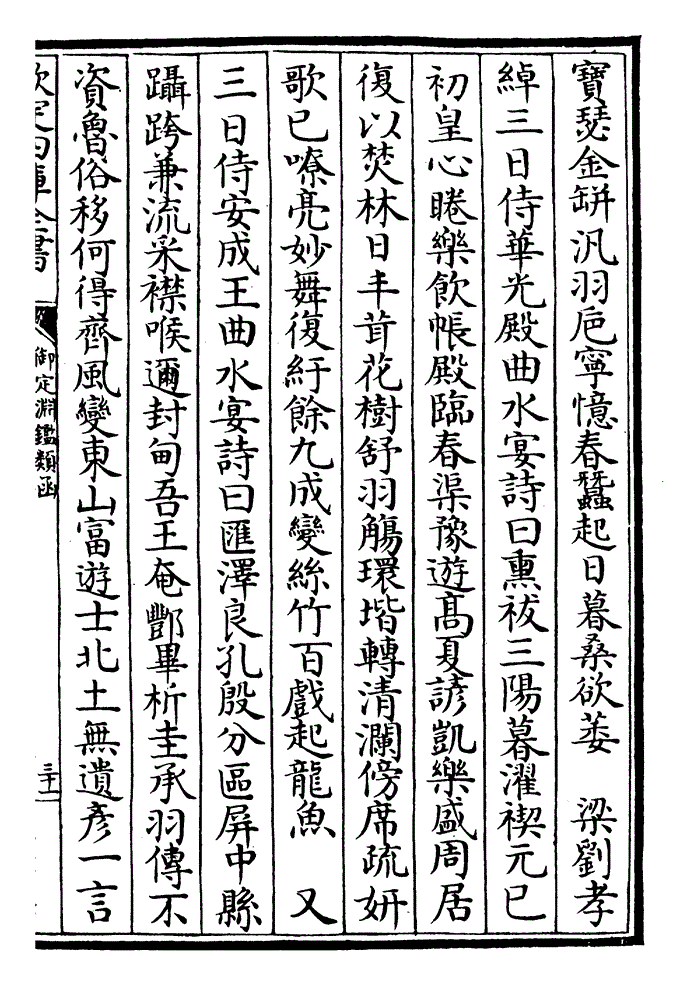 寶瑟金缾汎羽巵寧憶春蠶起日暮桑欲萎　梁劉孝
綽三日侍華光殿曲水宴詩曰熏祓三陽暮濯禊元巳
初皇心睠樂飲帳殿臨春渠豫遊髙夏諺凱樂盛周居
復以焚林日丰茸花樹舒羽觴環堦轉清瀾傍席疏妍
歌已嘹亮妙舞復紆餘九成變絲竹百戲起龍魚　又
三日侍安成王曲水宴詩曰匯澤良孔殷分區屏中縣
躡跨兼流采襟喉邇封甸吾王奄酆畢析圭承羽傳不
資魯俗移何得齊風變東山富遊士北土無遺彥一言
欽定四庫全書
御定淵鑑類函
三十一